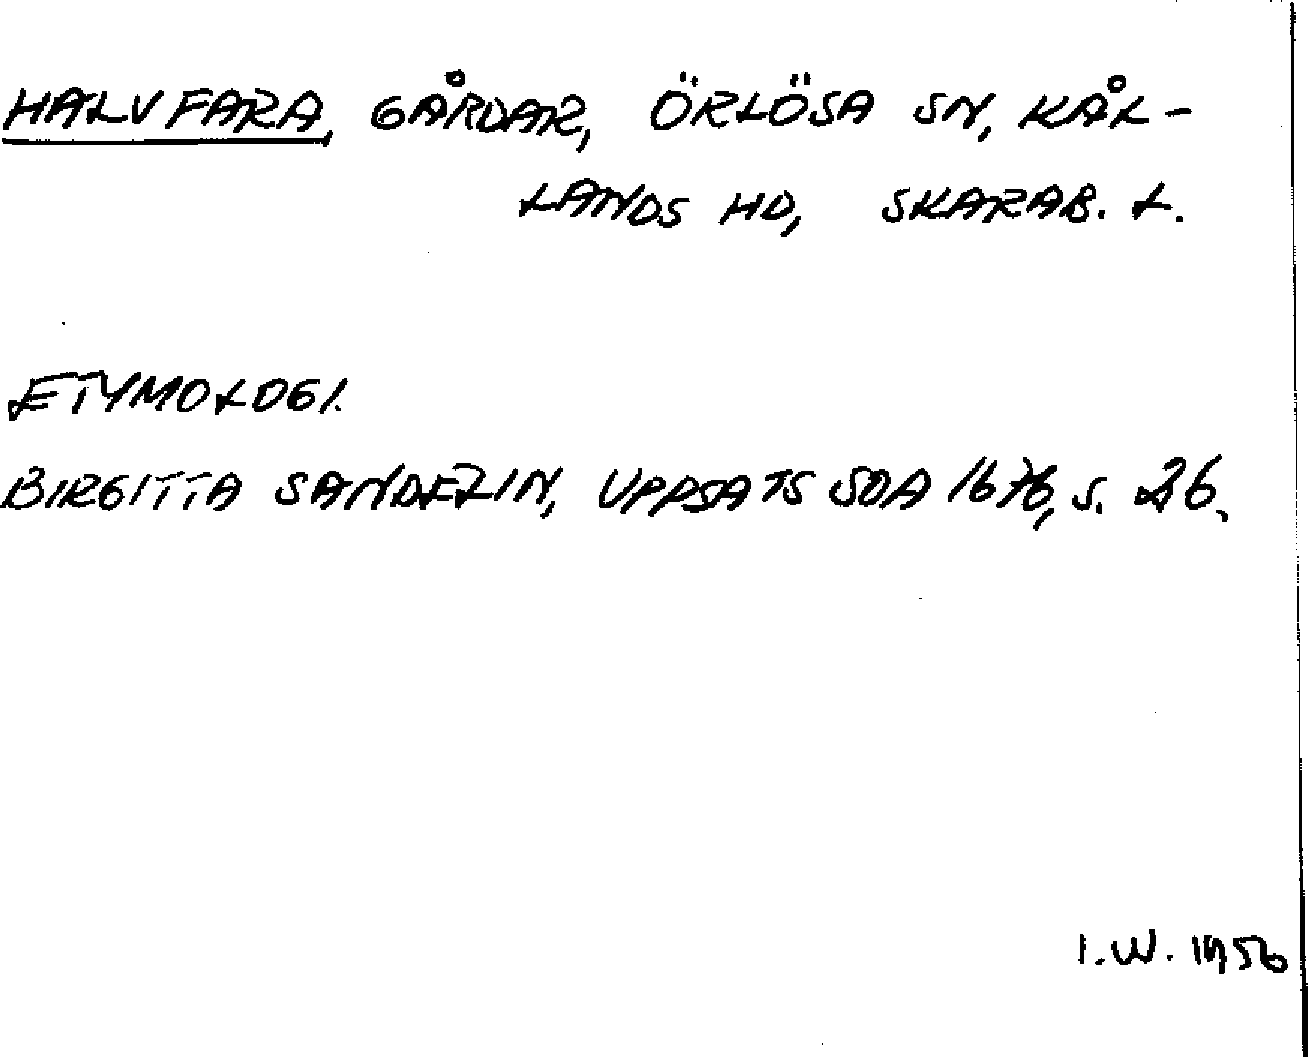 HALVFARA, GÅRDAR, ÖRLÖSA SN, KÅL-
LANDS HD, SKARAB. L.
ETYMOLOGI.
BIRGITTA SANDELIN, UPPSATS SOA 1676, S. 26.
I.W. 1956